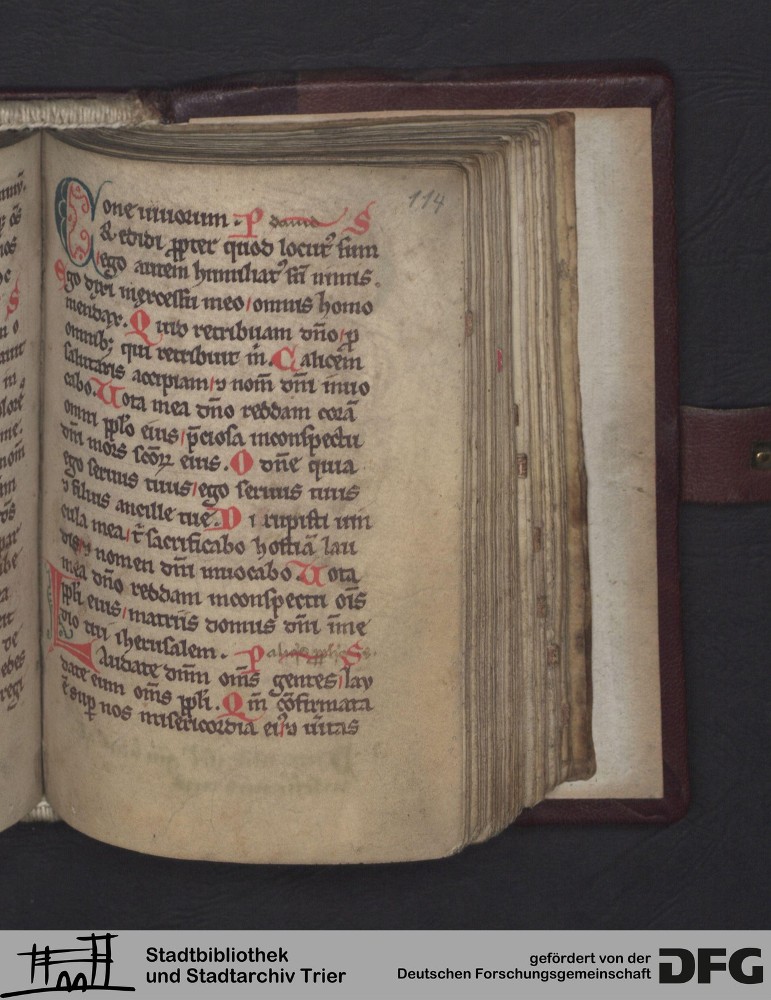 114
one uiuorum . P dauid S
C redidi ꝓpter quod locut᷒ sum
ego autem humiliat᷒ sū nimis .
Ego dixi inexcessu meo / omnis homo
mendax . Quid retribuam dño / ꝓ
omnibꝫ qui retribuit m̄ . Calicem
salutaris accipiam / ⁊ nom̄ dñi inuo
cabo . Uota mea dño reddam corā
omni ppl̓o eius / p̄ciosa inconspectu
dñi mors scōꝝ eius . O dñe quia
ego seruus tuus / ego seruus tuus
⁊ filius ancille tue . Di rupisti uin
cula mea / t̄ sacrificabo hostiā lau
dis / ⁊ nomen dñi inuocabo Uota
mea dño reddam inconspectu oīs
ppl̓i eius / in atriis domus dñi in me
dio tui iherusalem . P S
Laudate dñm om̄s gentes / lau
date eum om̄s ppl̓i . Qm̄ cōfirmata
ē suꝑ nos misericordia ei᷒ / ⁊ ūitas
Stadtbibliothek
und Stadtarchiv Trier
gefördert von der
Deutschen Forschungsgemeinschaft
DFG